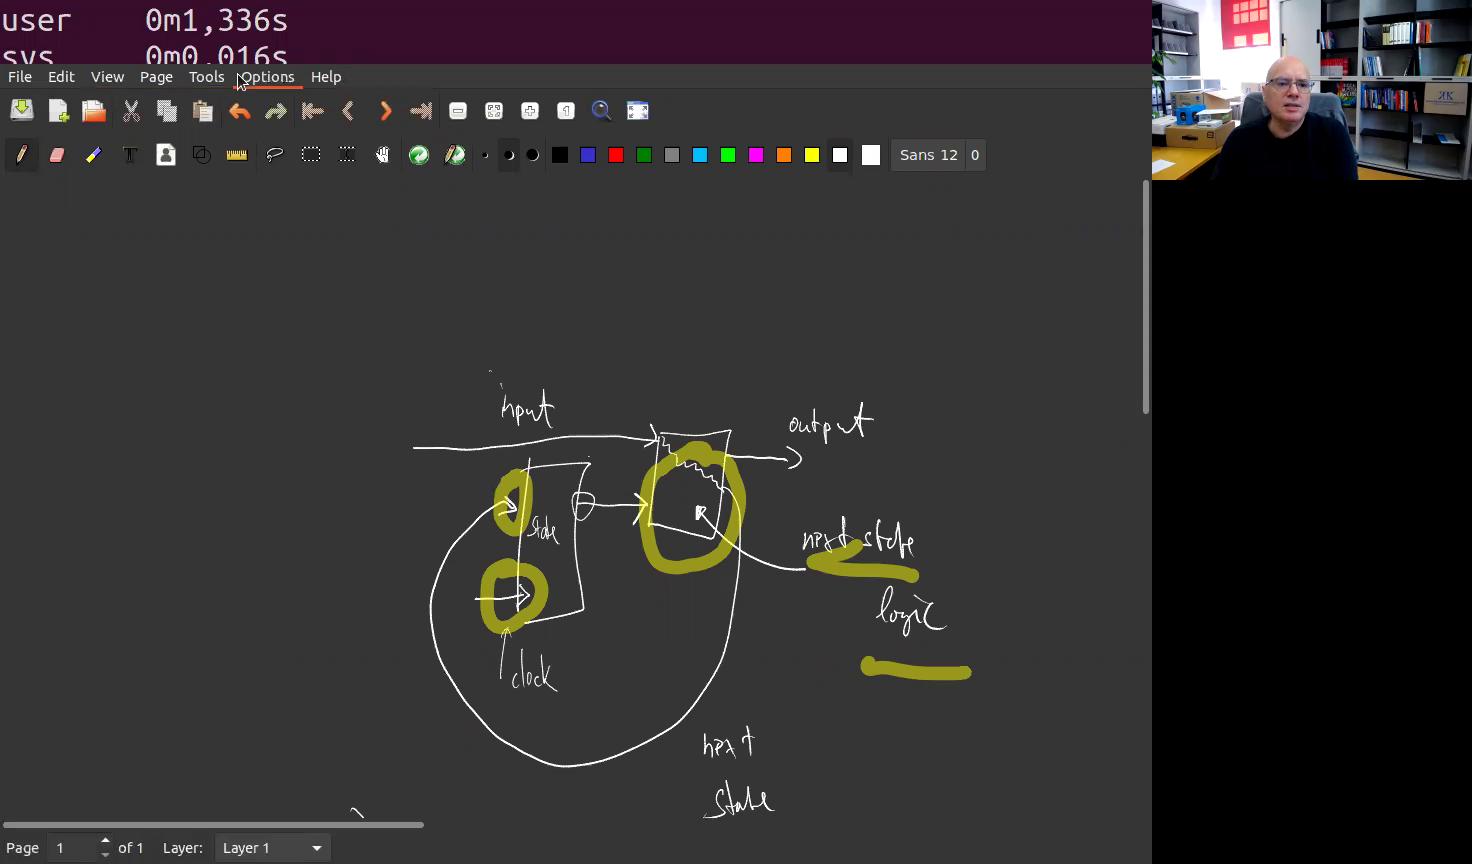 user 0m1,336s
sys 0m0,016s
File Edit View Page Tools Options Help
Sans 12 0
input
output
state
next state
logic
clock
next
state
Page 1 of 1 Layer: Layer 1